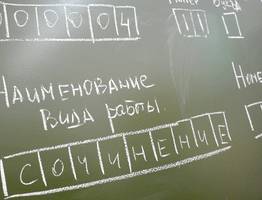 00004
Наименование
вида работы.
СОЧИНЕНИЕ